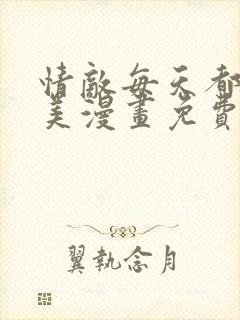 情敵每天都
美漫畫免費
翼執念月